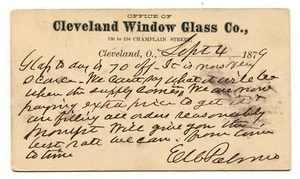 OFFICE OF
Cleveland Window Glass Co.,
130 to 134 CHAMPLAIN STREET
Cleveland, O., Sept 4 1879
Glass to day is 70 off. It is now very
scarce. We can't say what it will be
when the supply comes. We are now
paying extra price to get it &
are filling all orders reasonably
will give you the
best rate we can. from time
to time